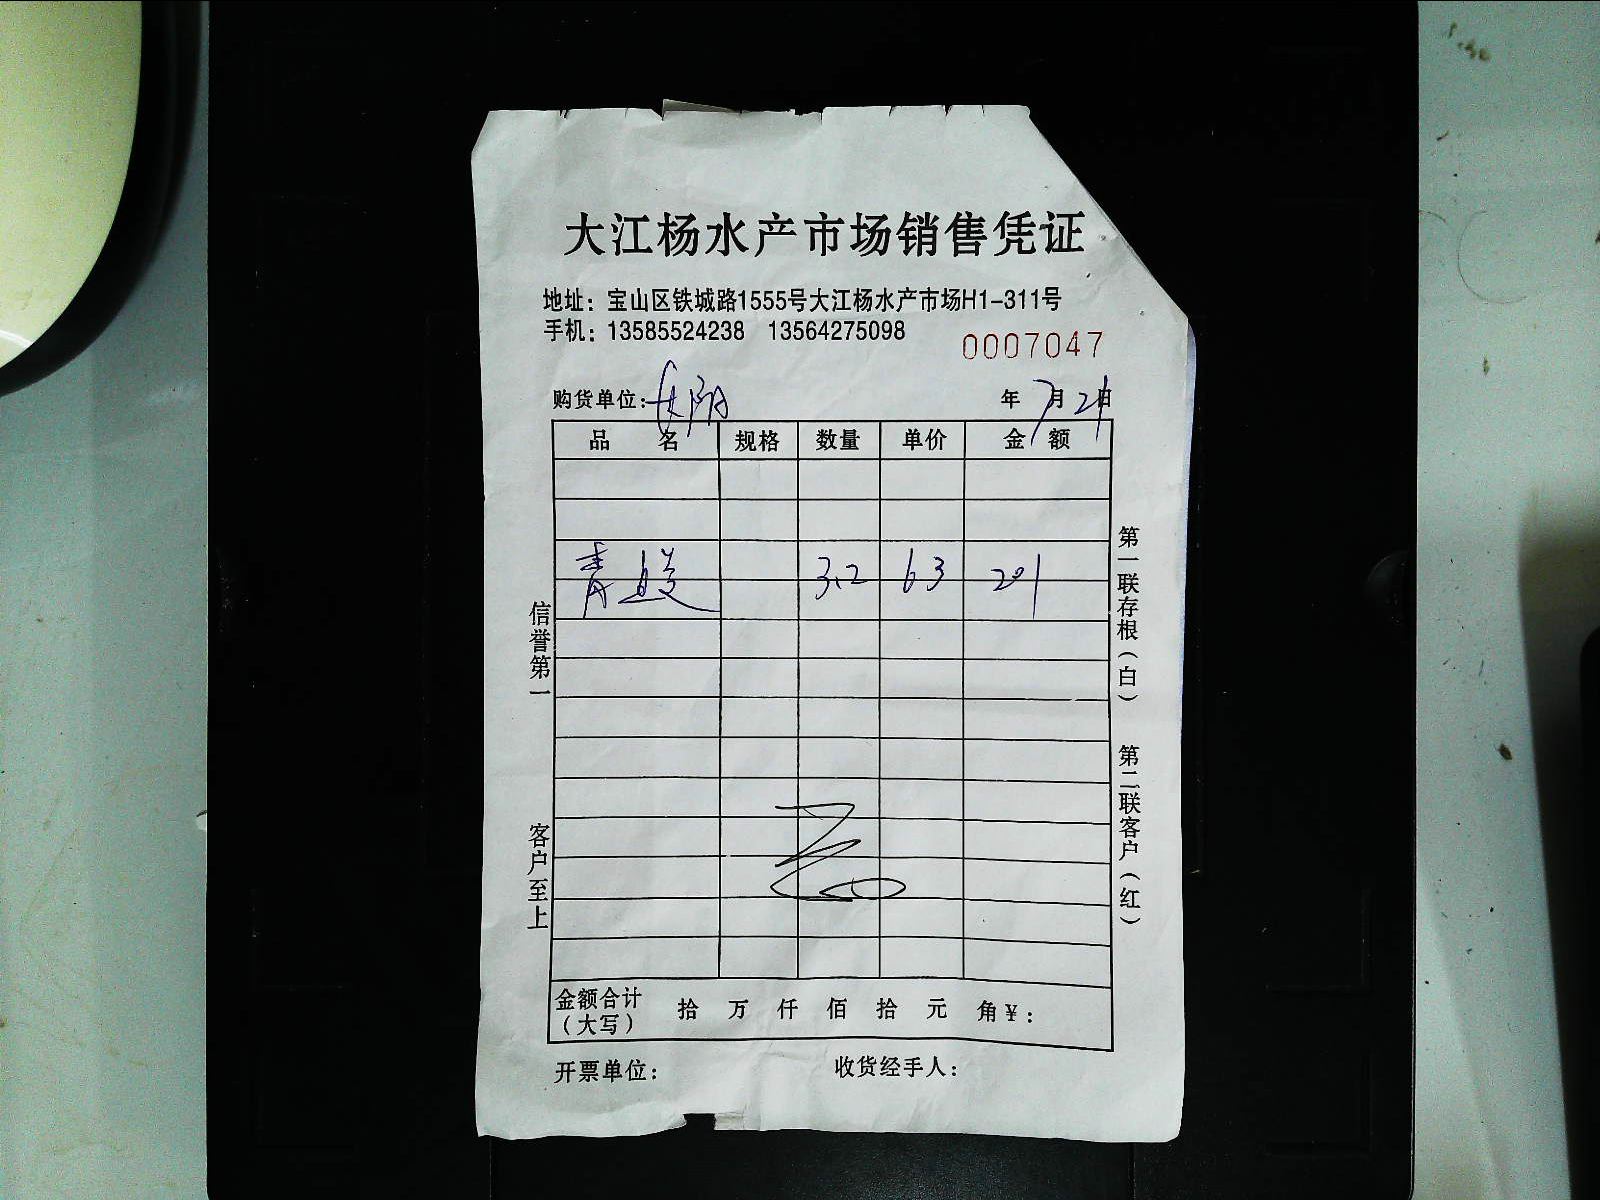 大江杨水产市场销售凭证
地址：宝山区铁城路1555号大江杨水产市场H1-311号
手机：13585524238 13564275098
0007047
购货单位： 年 7 月 21 日
品 名 规格 数量 单价 金 额
青 3.2 63 201
信誉第一
客户至上
第一联存根（白）
第二联客户（红）
金额合计（大写） 拾 万 仟 佰 拾 元 角 ¥：
开票单位： 收货经手人：